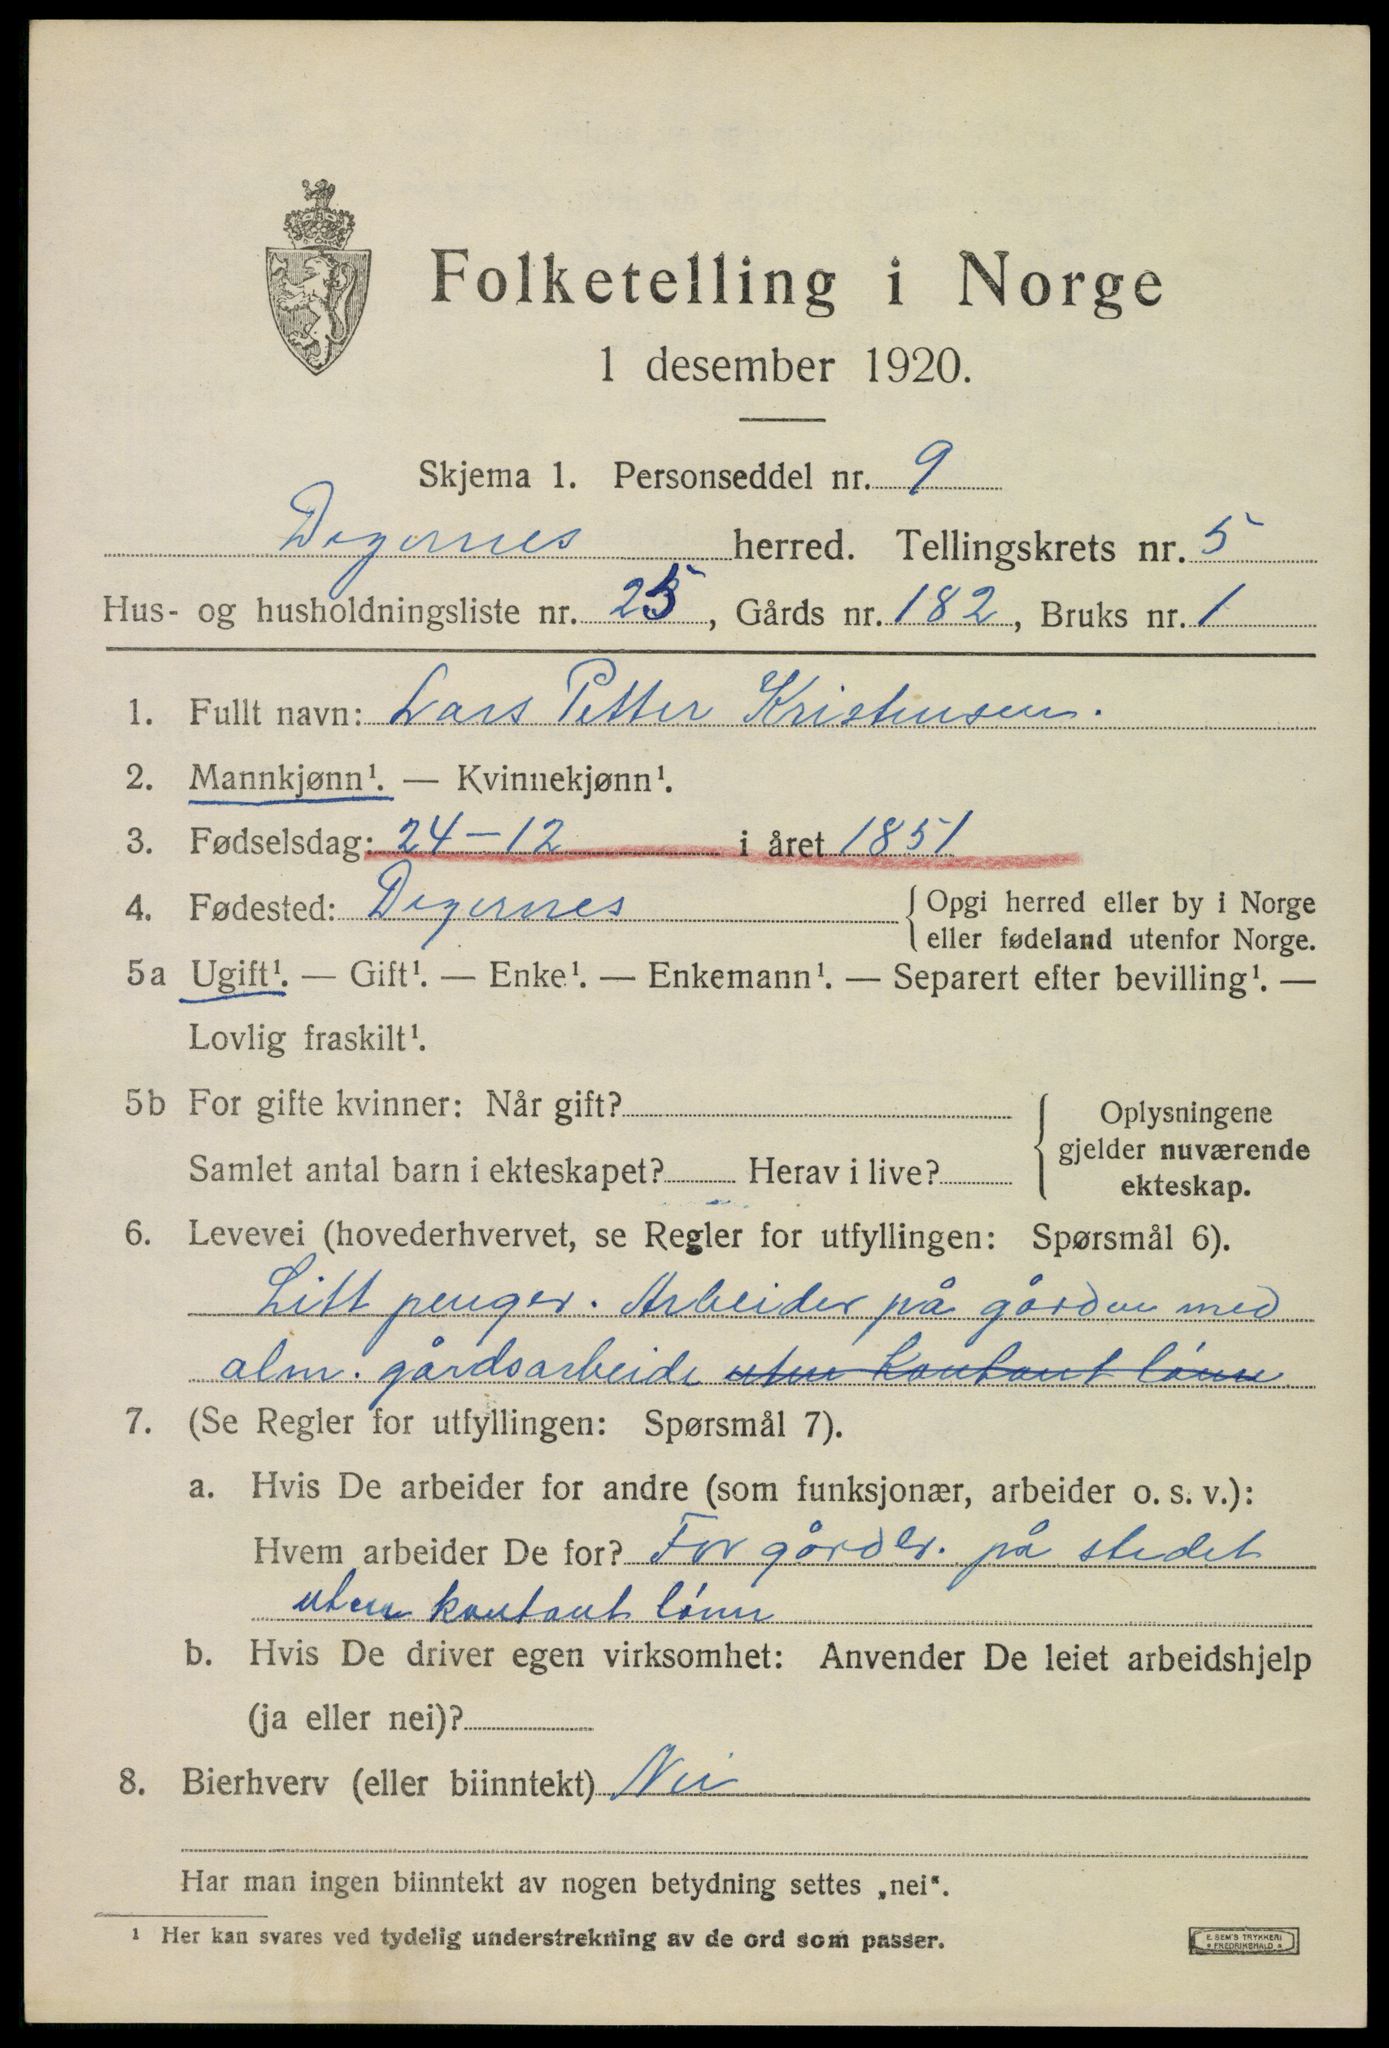 Folketelling i Norge
1 desember 1920.
Skjema 1. Personseddel nr. 9
Degernes herred. Tellingskrets nr. 5
Hus- og husholdningsliste nr. 25, Gårds nr. 182, Bruks nr. 1
1. Fullt navn: Lars Petter Kristensen.
2. Mannkjønn¹. — Kvinnekjønn¹.
3. Fødselsdag: 24-12 i året 1851
4. Fødested: Degernes { Opgi herred eller by i Norge
eller fødeland utenfor Norge.
5a Ugift¹. — Gift¹. — Enke¹. — Enkemann¹. — Separert efter bevilling¹. —
Lovlig fraskilt¹.
5b For gifte kvinner: Når gift? { Oplysningene
gjelder nuværende
Samlet antal barn i ekteskapet? Herav i live? ekteskap.
6. Levevei (hovederhvervet, se Regler for utfyllingen: Spørsmål 6).
Litt penger. Arbeider på gården med
alm. gårdsarbeide uten kontant lónn
7. (Se Regler for utfyllingen: Spørsmål 7).
a. Hvis De arbeider for andre (som funksjonær, arbeider o. s. v.):
Hvem arbeider De for? For gårdbr. på stedet
uten kontant lónn
b. Hvis De driver egen virksomhet: Anvender De leiet arbeidshjelp
(ja eller nei)?
8. Bierhverv (eller biinntekt) Nei
Har man ingen biinntekt av nogen betydning settes „nei“.
¹ Her kan svares ved tydelig understrekning av de ord som passer.
E. SEM'S TRYKKERI
FREDRIKSHALD